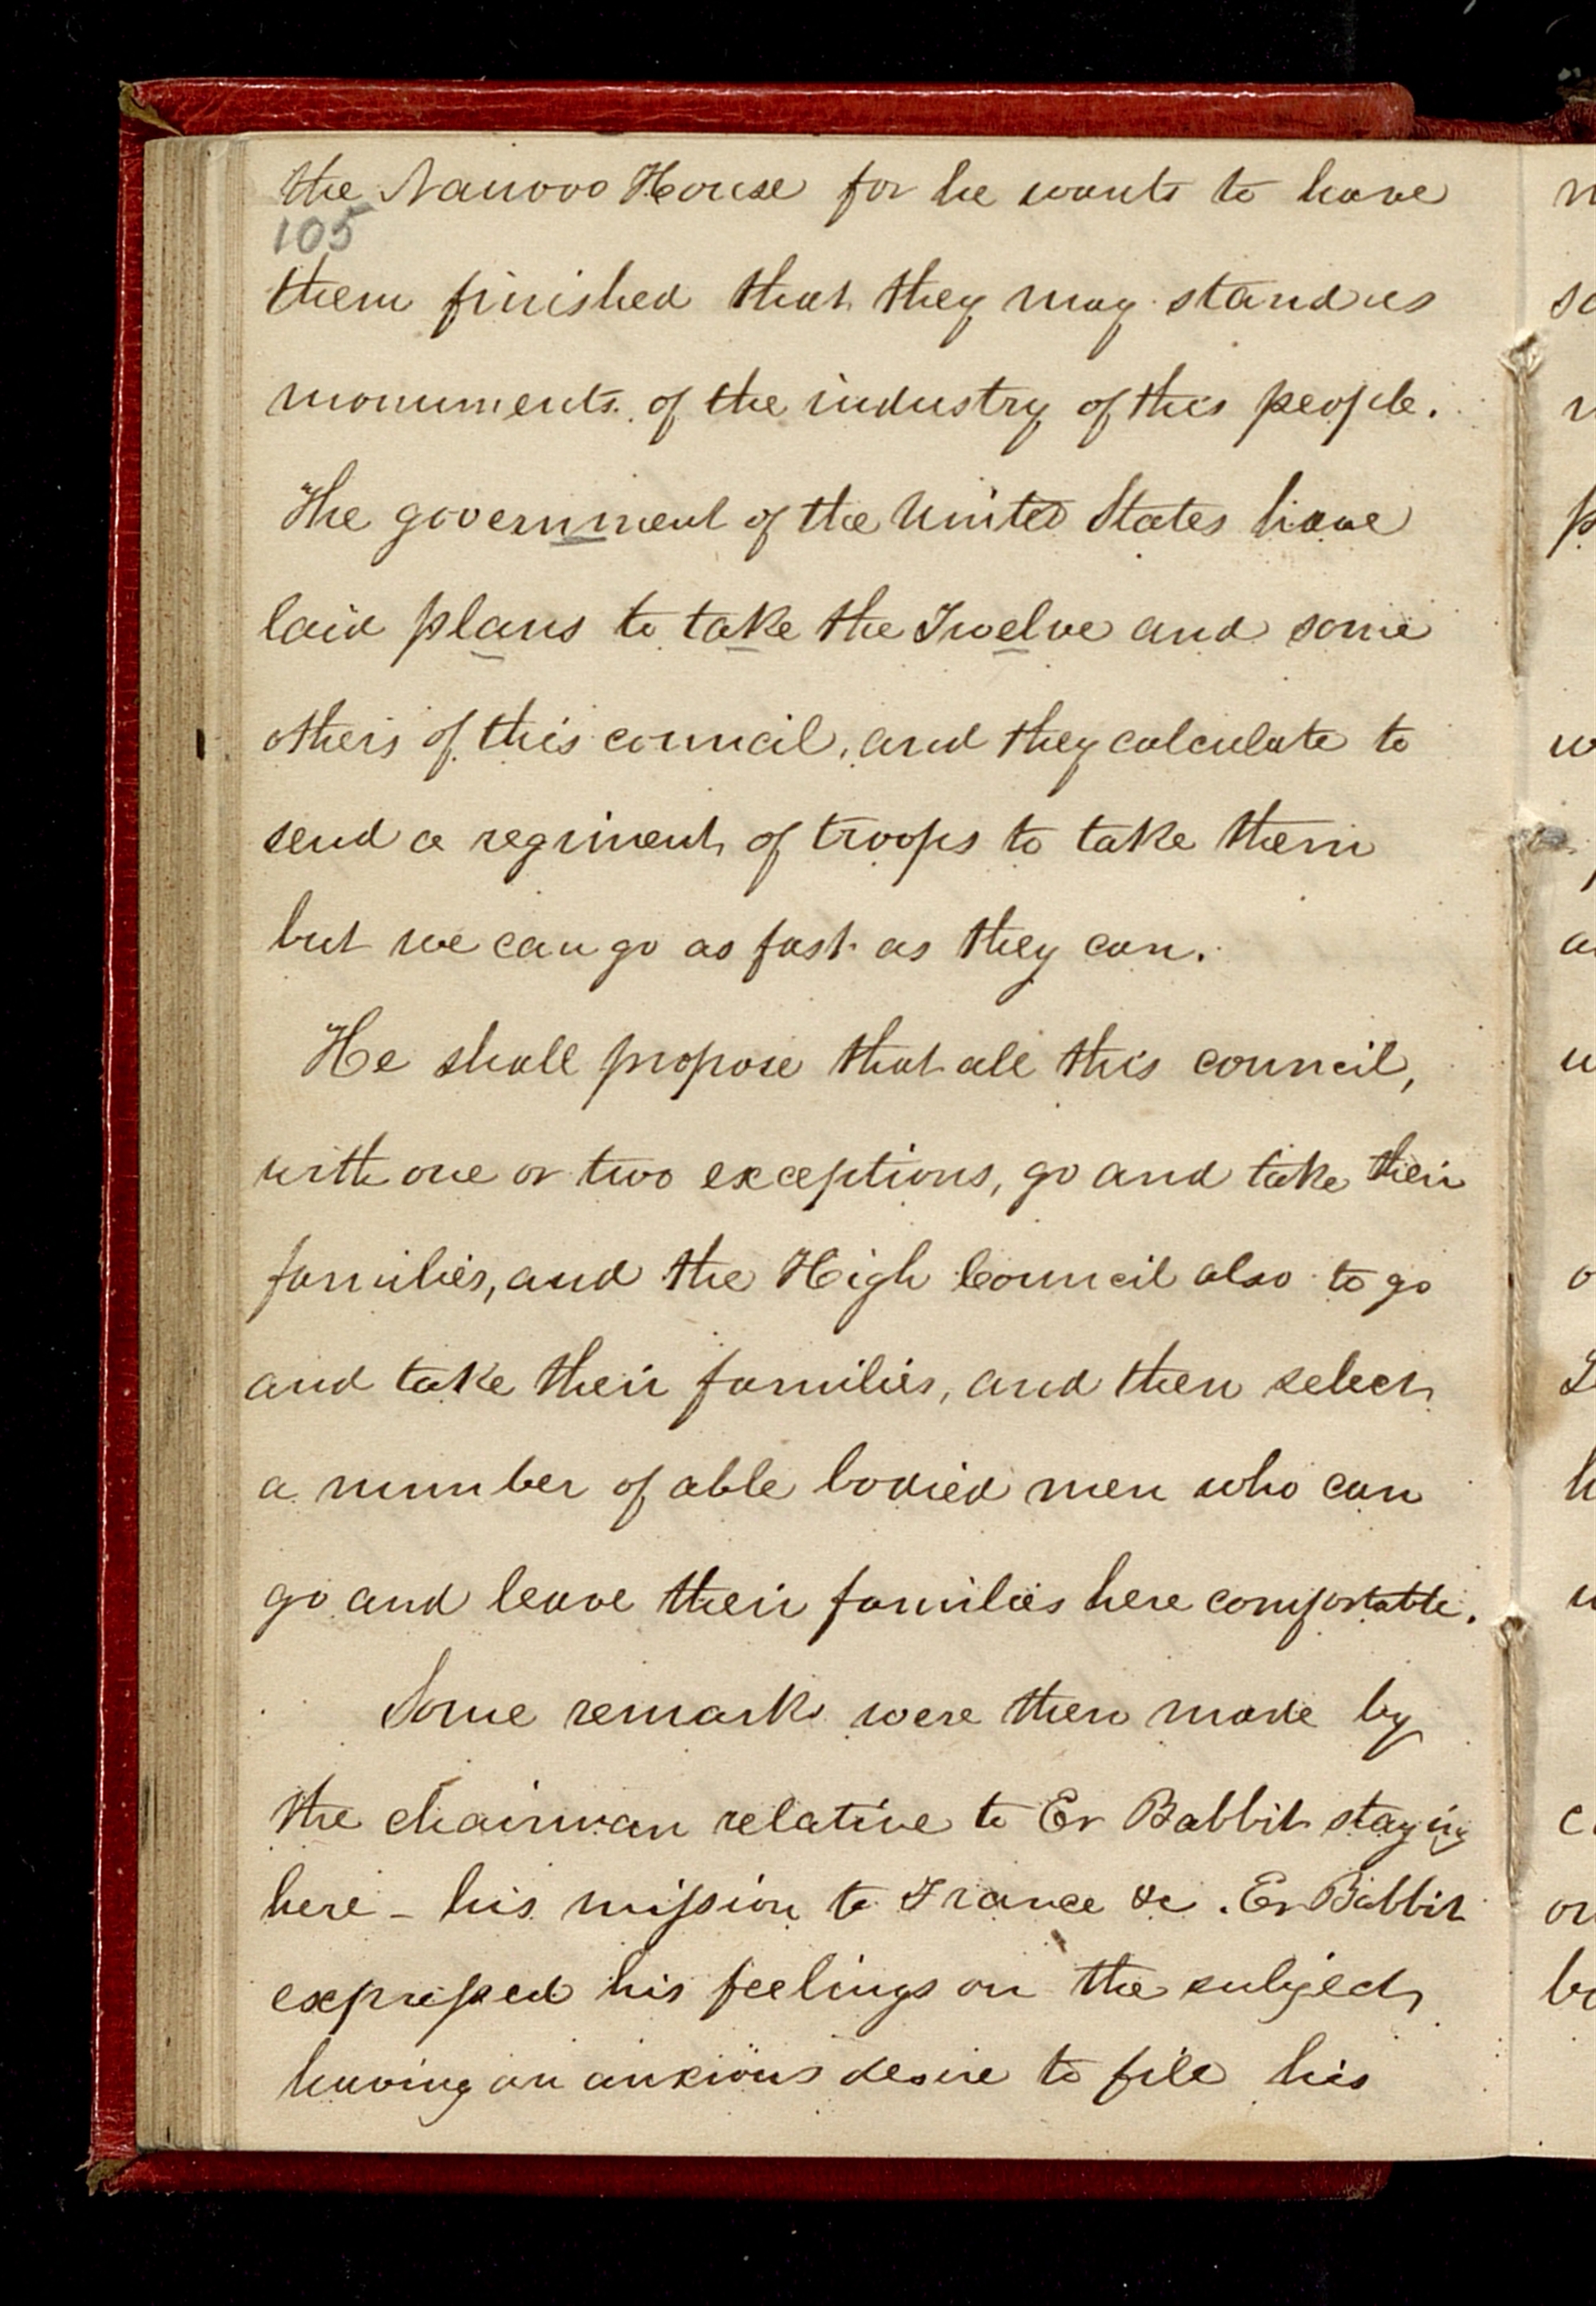 the Nauvoo House for he wants to have
105
them finished that they may stand as
monuments of the industry of this people.
The government of the United States have
laid plans to take the Twelve and some
others of this council, and they calculate to
send a regiment of troops to take them
but we can go as fast as they can.
He shall propose that all this council,
with one or two exceptions, go and take their
families, and the High Council also to go
and take their families, and then select
a number of able bodied men who can
go and leave their families here comfortable.
Some remarks were then made by
the chairman relative to Er Babbit staying
here - his mission to France &c. Er Babbit
expressed his feelings on the subject
having an anxious desire to file his